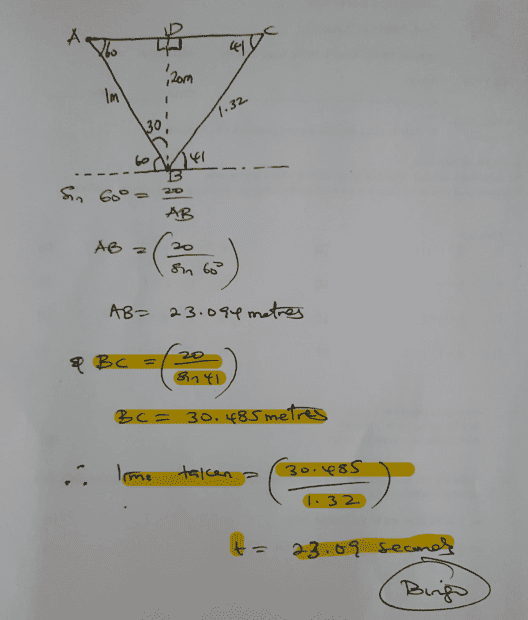 A D C
60 41
1m 20m 1.32
30
60 41
B
Sin 60° = 20
AB
AB = (20
Sin 60°)
AB = 23.094 metres
& BC = (20
Sin 41)
BC = 30.485 metres
∴ Time taken = (30.485
1.32)
t = 23.09 seconds
Bingo